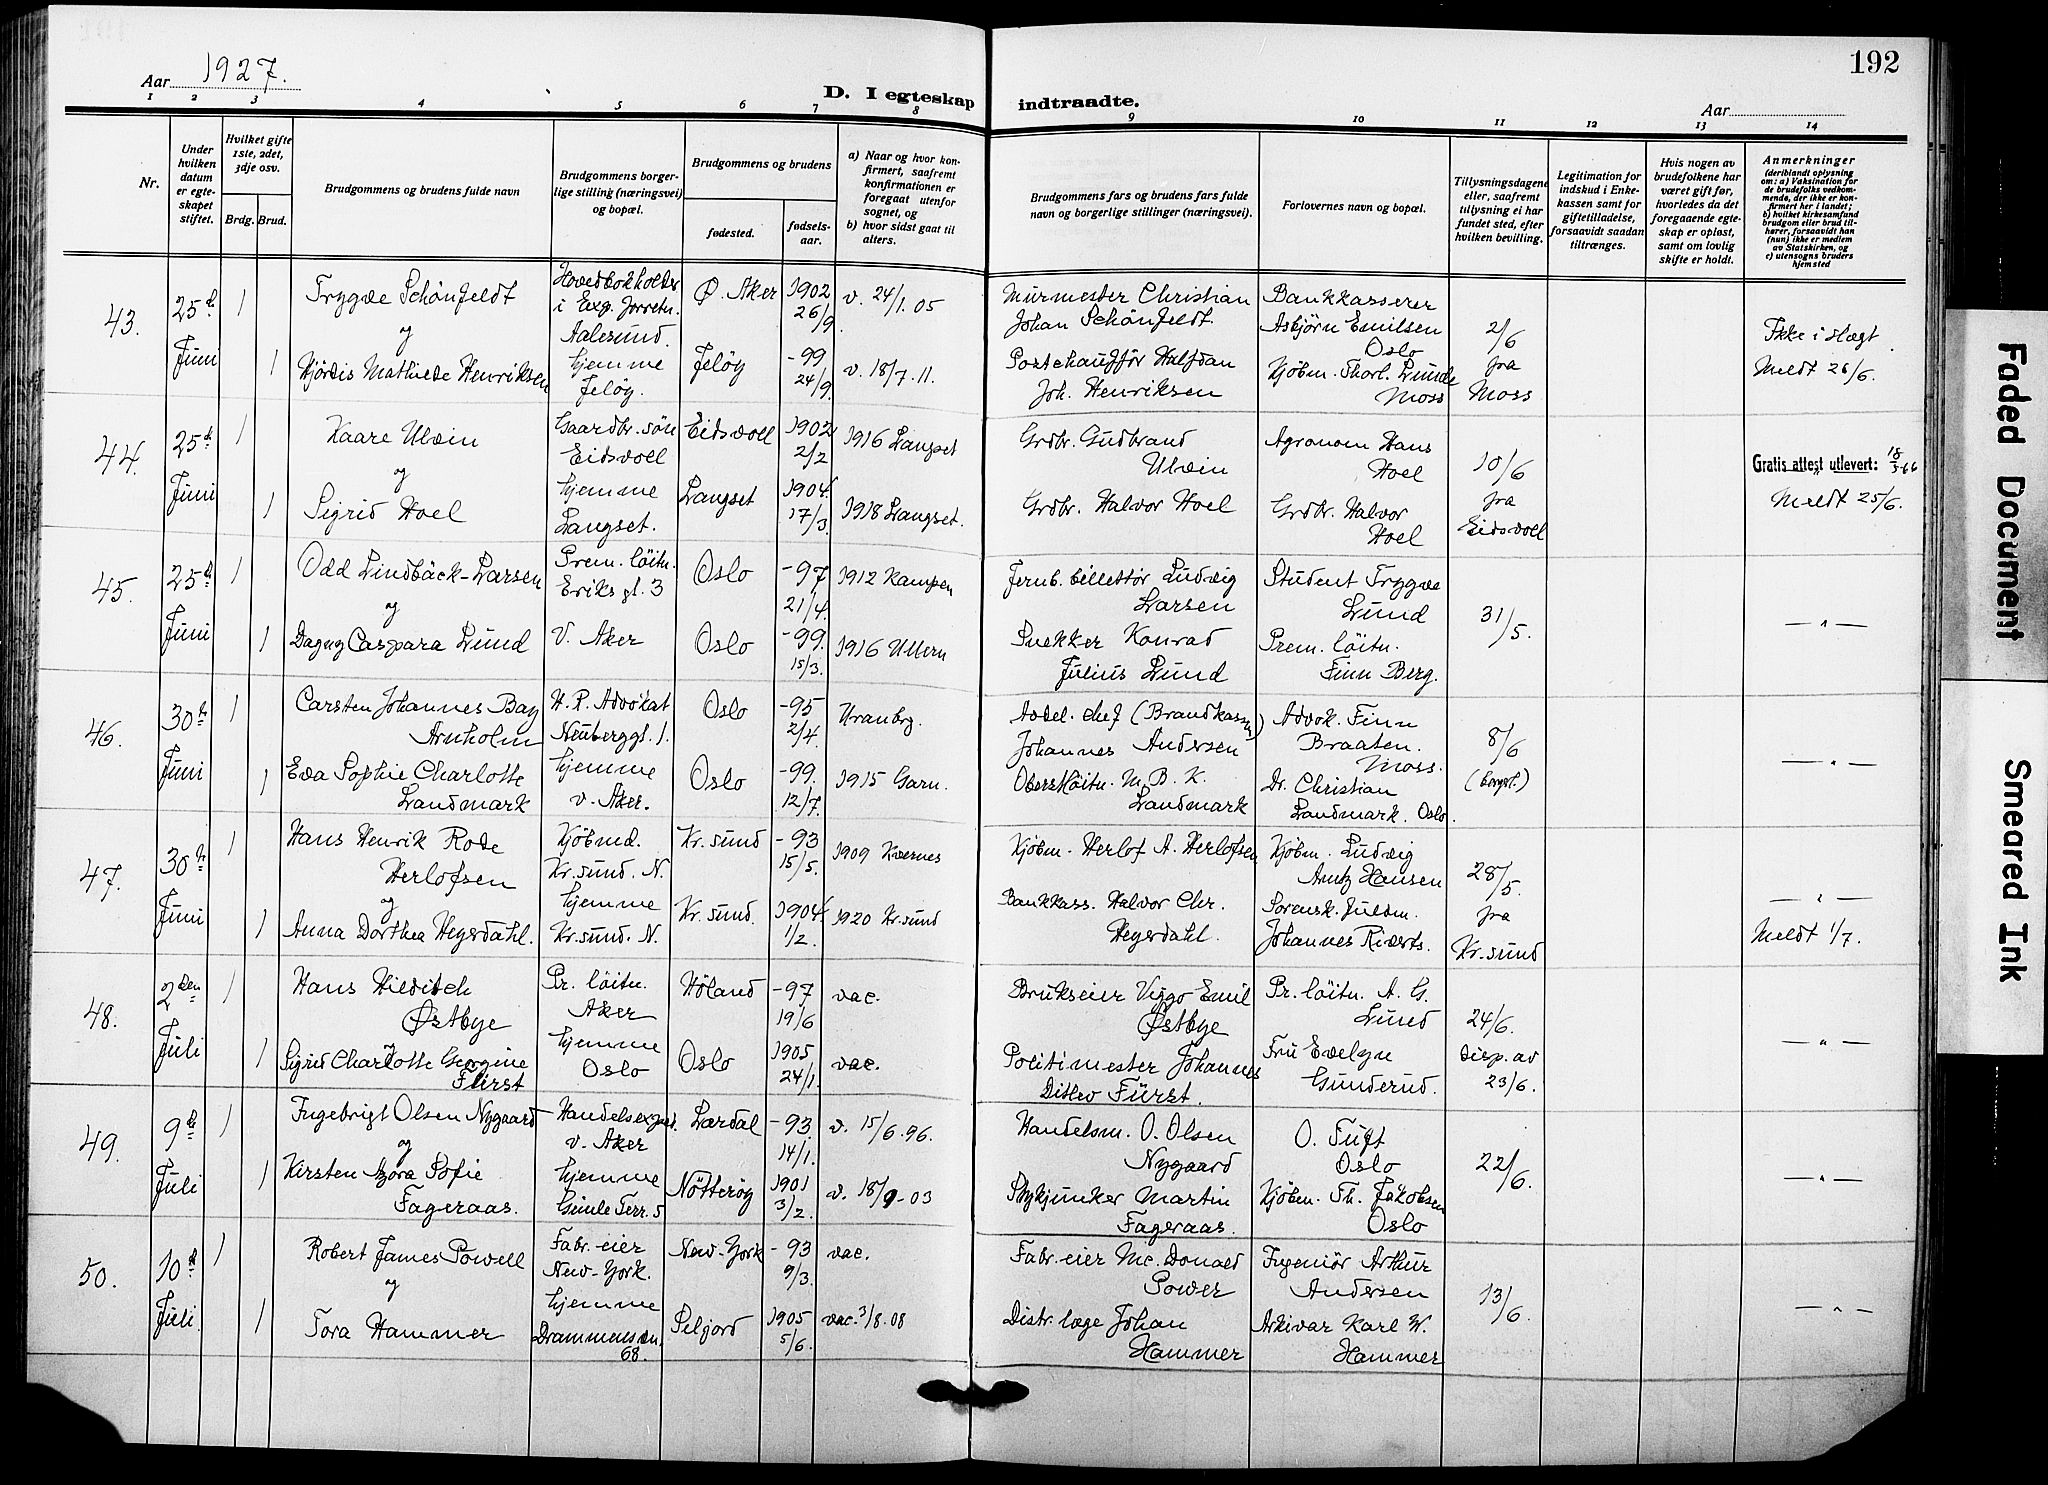 192
Aar 1927.
D. I egteskap indtraadte.
Aar
1 2 3 4 5 6 7 8 9 10 11 12 13 14
Nr.
Under hvilken datum er egteskapet stiftet.
Hvilket gifte 1ste, 2det, 3dje osv.
Brdg. Brud.
Brudgommens og brudens fulde navn
Brudgommens borgerlige stilling (næringsvei) og bopæl.
Brudgommens og brudens
fødested.
fødselsaar.
a) Naar og hvor konfirmert, saafremt konfirmationen er foregaat utenfor sognet, og
b) hvor sidst gaat til alters.
Brudgommens fars og brudens fars fulde navn og borgerlige stillinger (næringsvei).
Forlovernes navn og bopæl.
Tillysningsdagene eller, saafremt tillysning ei har fundet sted, efter hvilken bevilling.
Legitimation for indskud i Enkekassen samt for giftetilladelse, forsaavidt saadan tiltrænges.
Hvis nogen av brudefolkene har været gift før, hvorledes da det foregaaende egteskap er opløst, samt om lovlig skifte er holdt.
Anmerkninger
(deriblandt oplysning om: a) Vaksination for de brudefolks vedkommende, der ikke er konfirmert her i landet; b) hvilket kirkesamfund brudgom eller brud tilhører, forsaavidt han (hun) ikke er medlem av Statskirken, og c) utensogns bruders hjemsted
43. 25d Juni 1
Trygve Schönfeldt
og
Hovedbokholder
i Exp. forretn.
Aalesund.
Ø. Aker 1902 26/9 v. 24/1. 05
Murmester Christian
Johan Schönfeldt.
Bankkasserer
Asbjørn Emilsen
Oslo
2/6
fra
Moss
Ikke i slægt.
1 Hjördis Mathilde Henriksen
hjemme
Jeløy.
Jeløy -99 24/9 v. 18/7. 11.
Postchauffør Halfdan
Joh. Henriksen
Kjøbm. Thorl. Lunde
Moss
Meldt 26/6.
44. 25d Juni 1
Kaare Ulvin
og
Gaardbr. sön
Eidsvoll
Eidsvoll 1902 2/2 1916 Langset
Grdbr. Gudbrand
Ulvin
Agronom Hans
Hoel
10/6
fra
Eidsvoll
Gratis attest utlevert: 18/3-66
1 Sigrid Hoel
hjemme
Langset.
Langset 1904. 17/3 1918 Langset.
Grdbr. Halvor Hoel
Grdbr. Halvor
Hoel
Meldt 25/6.
45. 25d Juni 1
Odd Lindbäck-Larsen
og
Prem. löitn.
Eriks gt. 3
Oslo -97 21/4. 1912 Kampen
Jernb. billettør Ludvig
Larsen
Student Trygve
Lund
31/5.
— „ —
1 Dagny Caspara Lund
V. Aker
Oslo -99. 15/3. 1916 Ullern
Snekker Konrad
Julius Lund
Prem. löitn.
Finn Berg.
46. 30te Juni 1
Carsten Johannes Bay
Arnholm
H. R. Advokat
Neuberggt. 1.
Oslo -95 2/4. Uranbg.
Avdel. chef (Brandkassen)
Johannes Andersen
Advok. Finn
Braaten.
Moss.
8/6
(borgst.)
— „ —
1 Eva Sophie Charlotte
Landmark
hjemme
v. Aker.
Oslo -99. 12/7. 1915 Garn.
Oberstlöitn. M. B. K.
Landmark
Dr. Christian
Landmark. Oslo.
47. 30te Juni 1
Hans Henrik Rode
Herlofsen
og
Kjöbmd.
Kr.sund. N.
Kr. sund -93 15/5. 1909 Kvernes
Kjöbm. Herlof A. Herlofsen
Kjöbm. Ludvig
Arntz Hansen
28/5.
fra
Kr. sund
— „ —
1 Anna Dorthea Heyerdahl.
hjemme
Kr. sund. N.
Kr. sund. 1904 1/2. 1920 Kr. sund
Bankkass. Halvor Chr.
Heyerdahl.
Sorensk. fuldm.
Johannes
Meldt 1/7.
48. 2den Juli 1
Hans Hilditch
Østbye
Pr. löitn.
Aker
Høland -97 19/6 vac.
Brukseier Viggo Emil
Østbye
Pr. löitn. A. G.
Lund
24/6.
disp. av
23/6.
— „ —
1 Sigrid Charlotte Georgine
Fürst
hjemme
Oslo
Oslo 1905 24/1. vac.
Politimester Johannes
Ditlev Fürst.
Fru Evelyn
Gunderud.
49. 9de Juli 1
Ingebrigt Olsen Nygaard
og
Handelsexped.
v. Aker
Lærdal -93. 14/1. v. 15/6. 96.
Handelsm. O. Olsen
Nygaard
O. Tuft
Oslo
22/6.
— „ —
1 Kirsten Azora Sofie
Fageraas.
hjemme
Geinle Terr. 5
Nötteröy 1901 3/2. v. 18/9-03
Stykjunker Martin
Fageraas.
Kjöbm. Th. Jakobsen
Oslo
50. 10d Juli. 1
Robert James Powell
og
Fabr. eier
New-York.
New-York -93 9/3. vac.
Fabr. eier Mc. Donald
Power
Ingeniör Arthur
Andersen
13/6.
— „ —
1 Tora Hammer
hjemme
Drammensvn.
68.
Seljord 1905 5/6. vac. 3/8. 08
Distr. læge Johan
Hammer
Arkivar Karl W.
Hammer
Faded Document
Smeared Ink